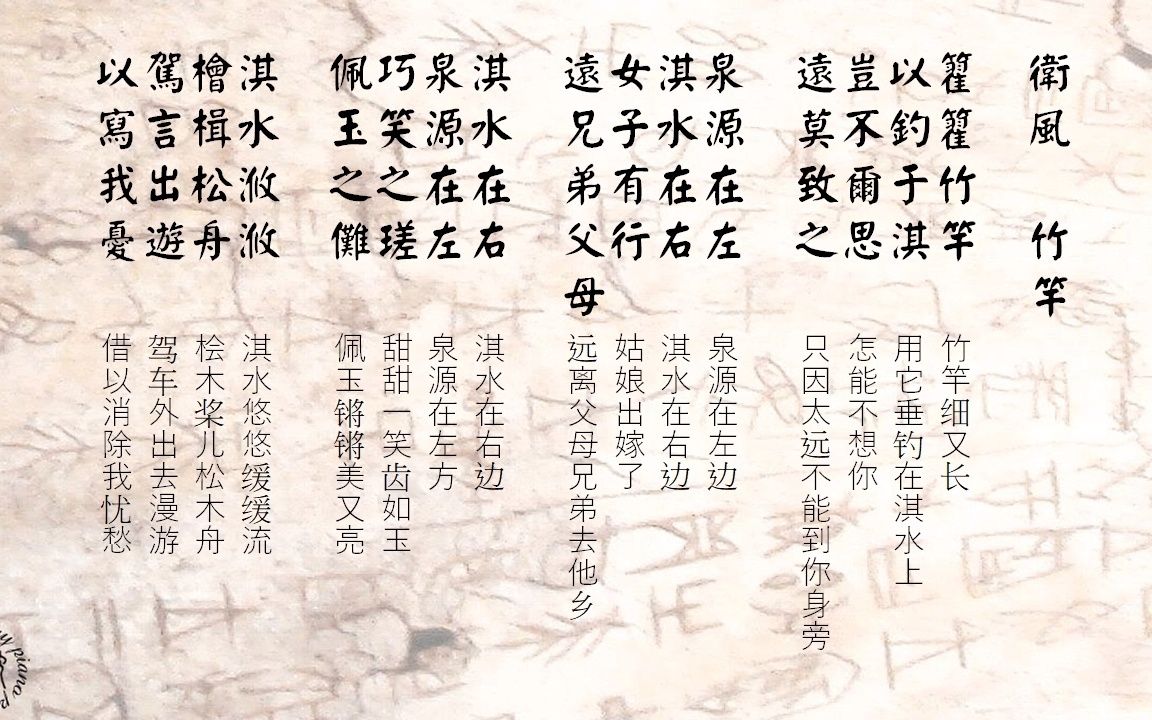 衛風 竹竿
籊籊竹竿
以釣于淇
豈不爾思
遠莫致之
泉源在左
淇水在右
女子有行
遠兄弟父母
淇水在右
泉源在左
巧笑之瑳
佩玉之儺
淇水滺滺
檜楫松舟
駕言出遊
以寫我憂
竹竿细又长
用它垂钓在淇水上
怎能不想你
只因太远不能到你身旁
泉源在左边
淇水在右边
姑娘出嫁了
远离父母兄弟去他乡
淇水在右边
泉源在左方
甜甜一笑齿如玉
佩玉锵锵美又亮
淇水悠悠缓缓流
桧木桨儿松木舟
驾车外出去漫游
借以消除我忧愁
piano